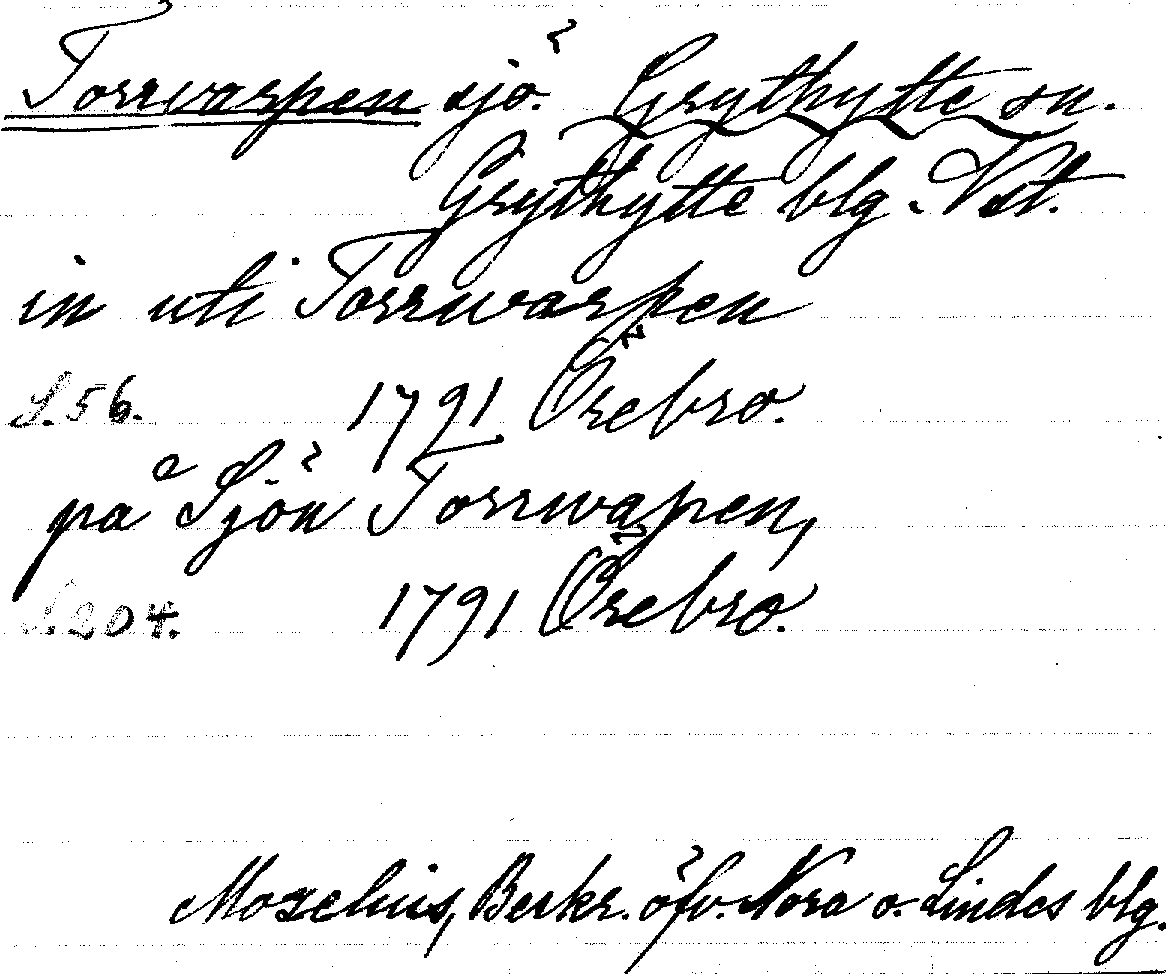 Torrvarpen sjö. Grythytte sn.
Grythytte blg. Vstl.
in uti Torrwarpen
S. 56. 1791 Örebro.
på Sjön Torrwapen,
S. 204. 1791 Örebro.
Moxelius, Beskr. öfv. Nora o. Lindes blg.